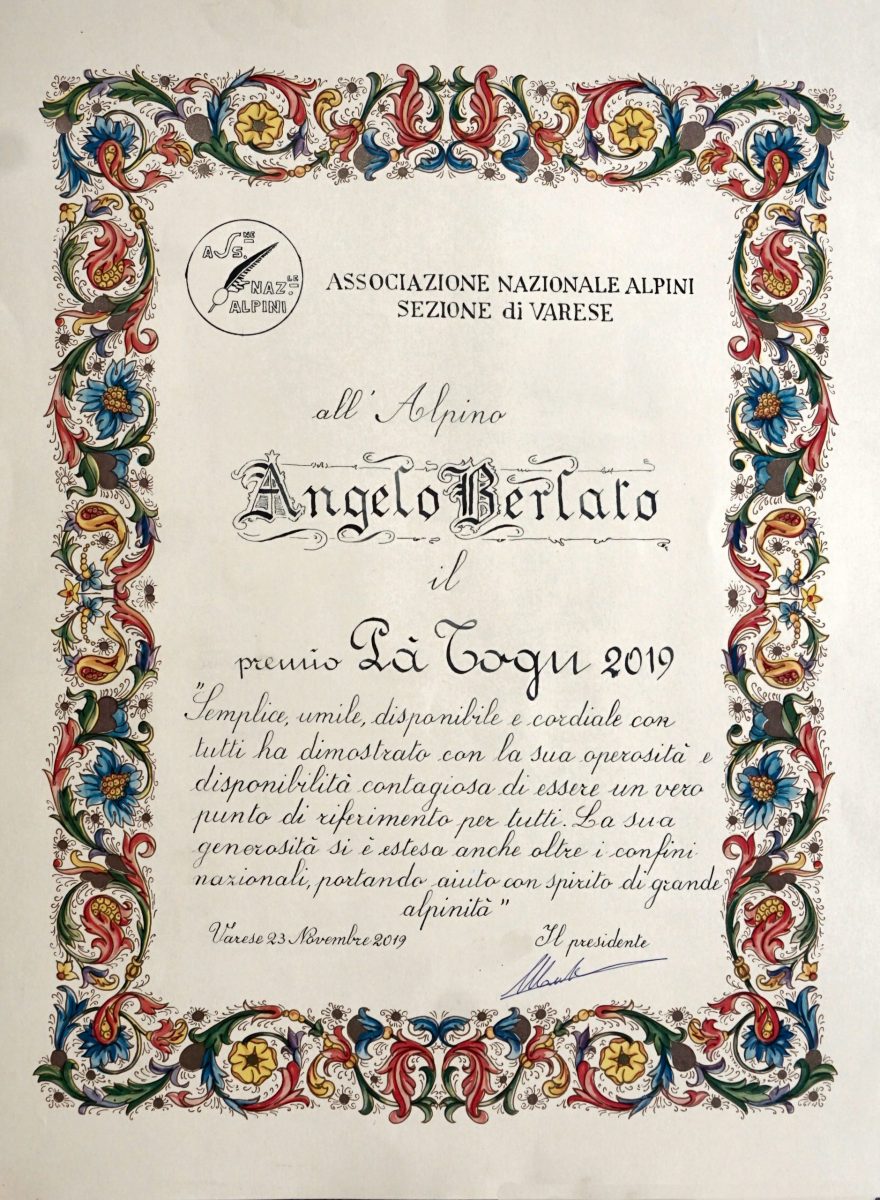 ASS.NE
NAZ.LE
ALPINI
ASSOCIAZIONE NAZIONALE ALPINI
SEZIONE di VARESE
all'Alpino
Angelo Berlato
il
premio Pà Togn 2019
"Semplice, umile, disponibile e cordiale con
tutti ha dimostrato con la sua operosità e
disponibilità contagiosa di essere un vero
punto di riferimento per tutti. La sua
generosità si è estesa anche oltre i confini
nazionali, portando aiuto con spirito di grande
alpinità"
Varese 23 Novembre 2019 Il presidente